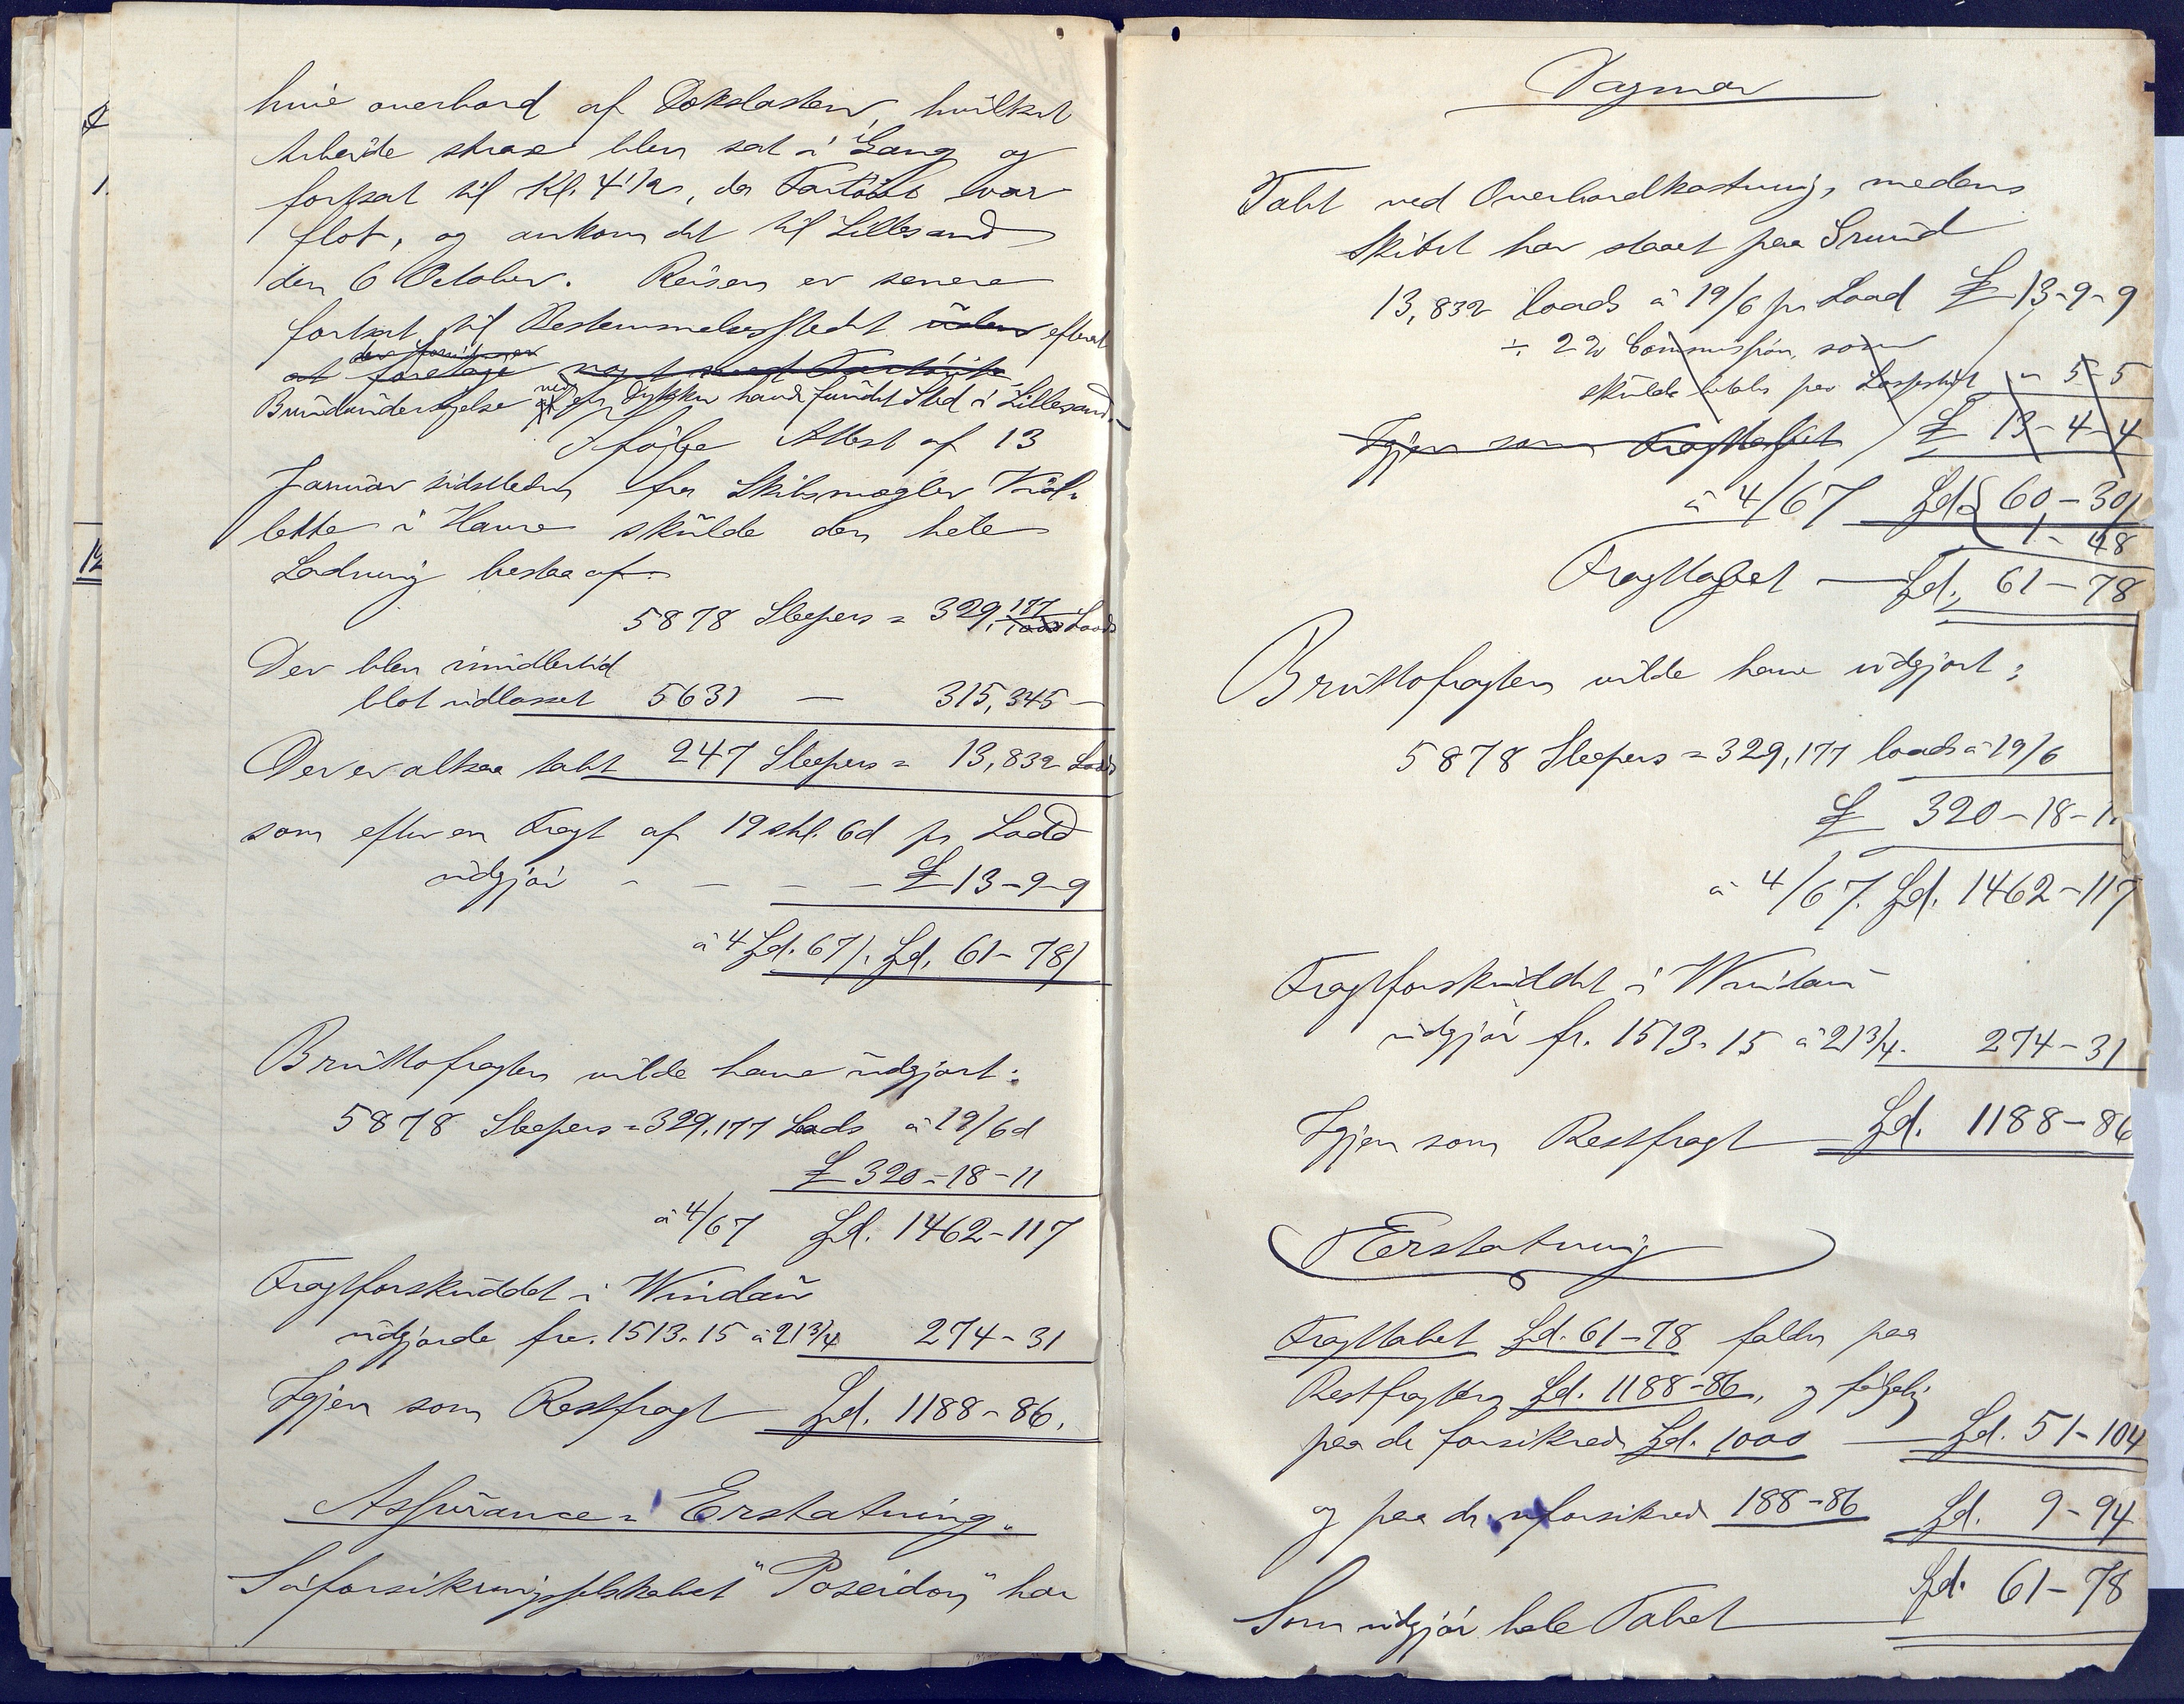 hive overbord af Dækslasten, hvilket
Arbeide strax blev sat i Gang og
fortsat til Kl. 4 1/2, da Fartöiet var
flot, og ankom det til Lillesand
den 6 October. Reisen er senere
fortsat til Bestemmelsesstedet uden efterat
at foretage noget med Fartöiet
Bundundersögelse ved en Dykker havde fundet Sted i Lillesand.
Ifölge Attest af 13
Januar sidstleden fra Skibsmægler
lette i Havre skulde den hele
Ladning bestaa af:
5878 Sleepers = 329,177 Loads
Der blev imidlertid
blot udlosset 5631 — 315,345 —
Der er altsaa tabt 247 Sleepers = 13,832 Loads
som efter en Fragt af 19 shl. 6d pr Load
udgjör - - - - £ 13-9-9
à 4 Spd. 67 / . Spd. 61-78 /
Bruttofragten vilde have udgjort:
5878 Sleepers = 329,177 Loads à 19/6d
£ 320-18-11
à 4/67 Spd. 1462-117
Fragtforskuddet i Windau
udgjorde frc. 1513.15 à 21 3/4 274-31
Igjen som Restfragt Spd. 1188-86.
Assurance = Erstatning.
Söforsikringsselskabet "Poseidon" har
Dagmar
Tabt ved Overbordkastning, medens
Skibet har staaet paa Grund
13,832 loads à 19/6 pr Load £ 13-9-9
÷ 2% Commission, som
skulde betales paa Lossested " 5-5
Igjen som Fragttabet £ 13-4-4
à 4/67 Spd. 60-30/
1-48
Fragttabet — Spd. 61-78
Bruttofragten vilde have udgjort:
5878 Sleepers = 329,177 loads à 19/6
£ 320-18-11
à 4/67. Spd. 1462-117
Fragtforskuddet i Windau
udgjör fr. 1513.15 à 21 3/4. 274-31
Igjen som Restfragt Spd. 1188-86
Erstatning
Fragttabet Spd. 61-78 falder paa
Restfragten Spd. 1188-86, og fölgelig
paa de forsikrede Spd. 1000 — Spd. 51-104
og paa de uforsikrede 188-86 Spd. 9-94
Spd. 61-78
Som udgjör hele Tabet